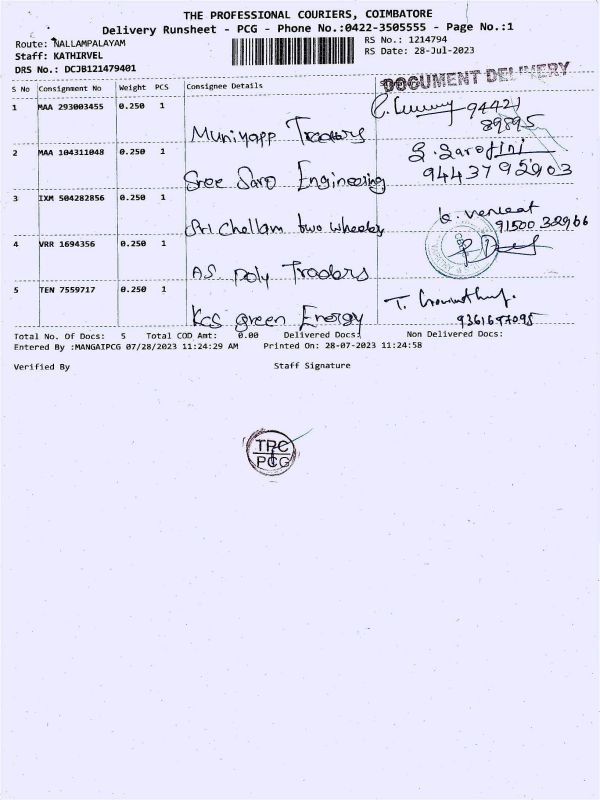 THE PROFESSIONAL COURIERS, COIMBATORE
Delivery Runsheet - PCG - Phone No.:0422-3505555 - Page No.:1
Route: NALLAMPALAYAM
RS No.: 1214794
Staff: KATHIRVEL
RS Date: 28-Jul-2023
DRS No.: DCJB121479401
DOCUMENT DELIVERY
S No Consignment No Weight PCS Consignee Details
1 MAA 293003455 0.250 1
94421
89895
Muniyapp Traders
2 MAA 104311048 0.250 1
S. Sarojini
94437 92903
Sree Saro Engineering
3 IXM 504282856 0.250 1
k. venkat
91500 32966
Sri Chellam two wheeler
4 VRR 1694356 0.250 1
AS Poly Traders
5 TEN 7559717 0.250 1
9361697095
Kcs green Energy
Total No. Of Docs: 5 Total COD Amt: 0.00 Delivered Docs: Non Delivered Docs:
Entered By :MANGAIPCG 07/28/2023 11:24:29 AM Printed On: 28-07-2023 11:24:58
Verified By Staff Signature
TPC
PCG